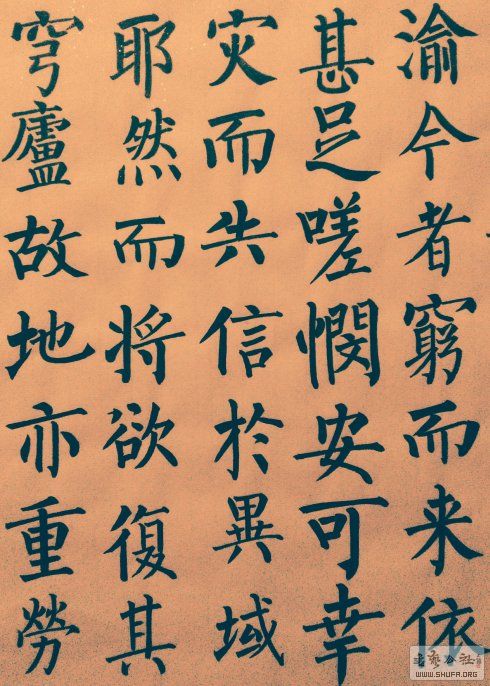 渝今者窮而来依
甚足嗟憫安可幸
灾而失信於異域
耶然而将欲復其
穹廬故地亦重勞
书艺公社
WWW.SHUFA.ORG